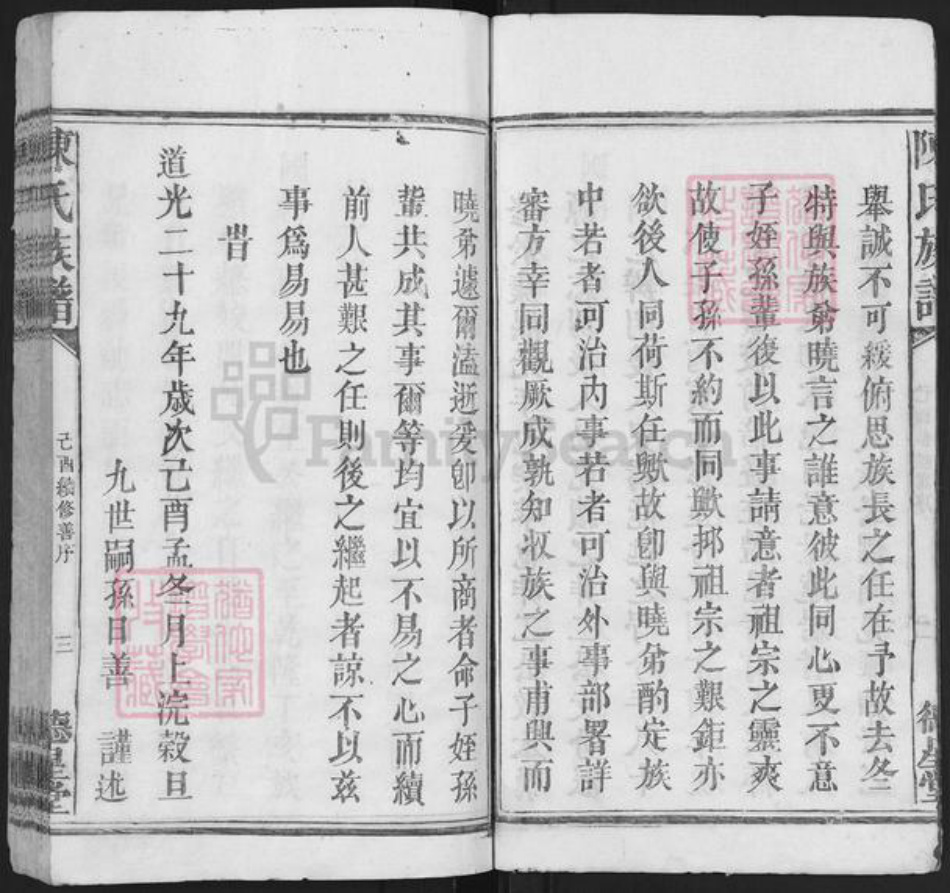 舉誠不可緩俯思族長之任在予故去冬
特與族弟曉言之誰意彼此同心更不意
子姪孫輩復以此事請意者祖宗之靈爽
故使子孫不約而同歟抑祖宗之艱鉅亦
欲後人同荷斯任歟故卽與曉弟酌定族
中若者可治內事若者可治外事部署詳
審方幸同觀厥成孰知收族之事甫興而
曉弟遽爾溘逝爰卽以所商者命子姪孫
輩共成其事爾等均宜以不易之心而續
前人甚艱之任則後之繼起者諒不以茲
事爲易易也
旹
道光二十九年歲次己酉孟冬月上浣穀旦
九世嗣孫日善 謹述
陳氏族譜
己酉續修善序
三
德星堂
FamilySearch